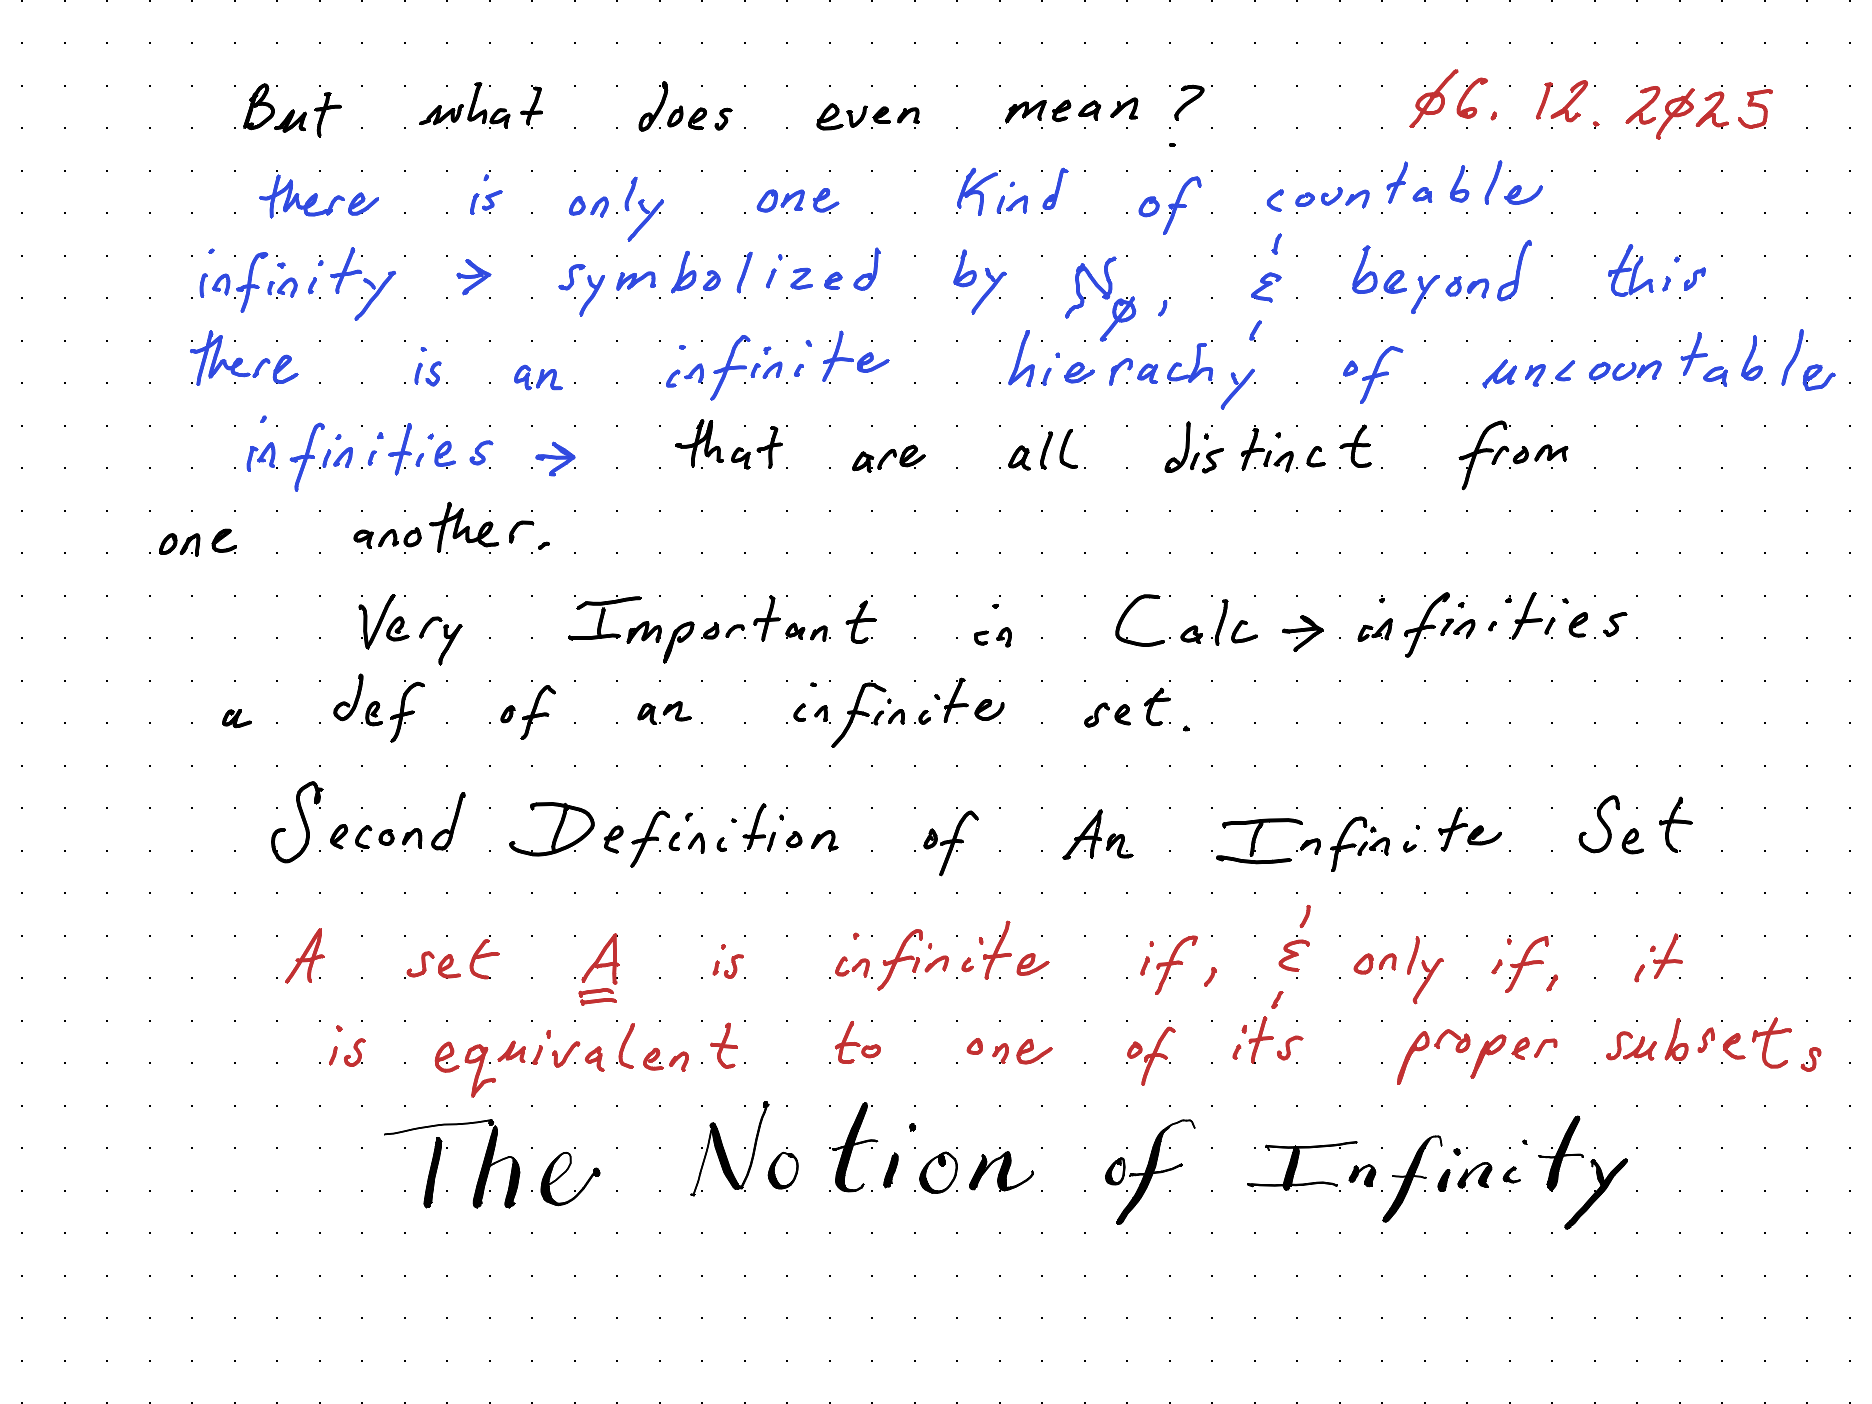 But what does even mean? 06.12.2025
there is only one Kind of countable
infinity → symbolized by ℵ₀, & beyond this
there is an infinite hierachy of uncountable
infinities → that are all distinct from
one another.
Very Important in Calc → infinities
a def of an infinite set.
Second Definition of An Infinite Set
A set A is infinite if, & only if, it
is equivalent to one of it's proper subsets
The Notion of Infinity